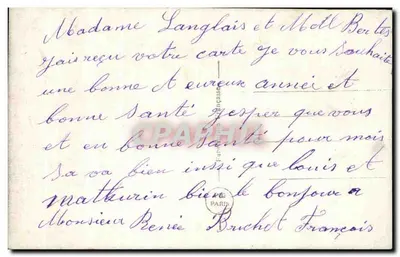 Madame Langlais et Mdll Bertes
jais reçu votre carte je vous souhaite
une bonne et eureux année et
bonne santé jesper que vous
et en bonne santé pour mois
sa va bien inssi que louis et
mathurin bien le bonjour a
Monsieur Renée Brichet François
PARIS